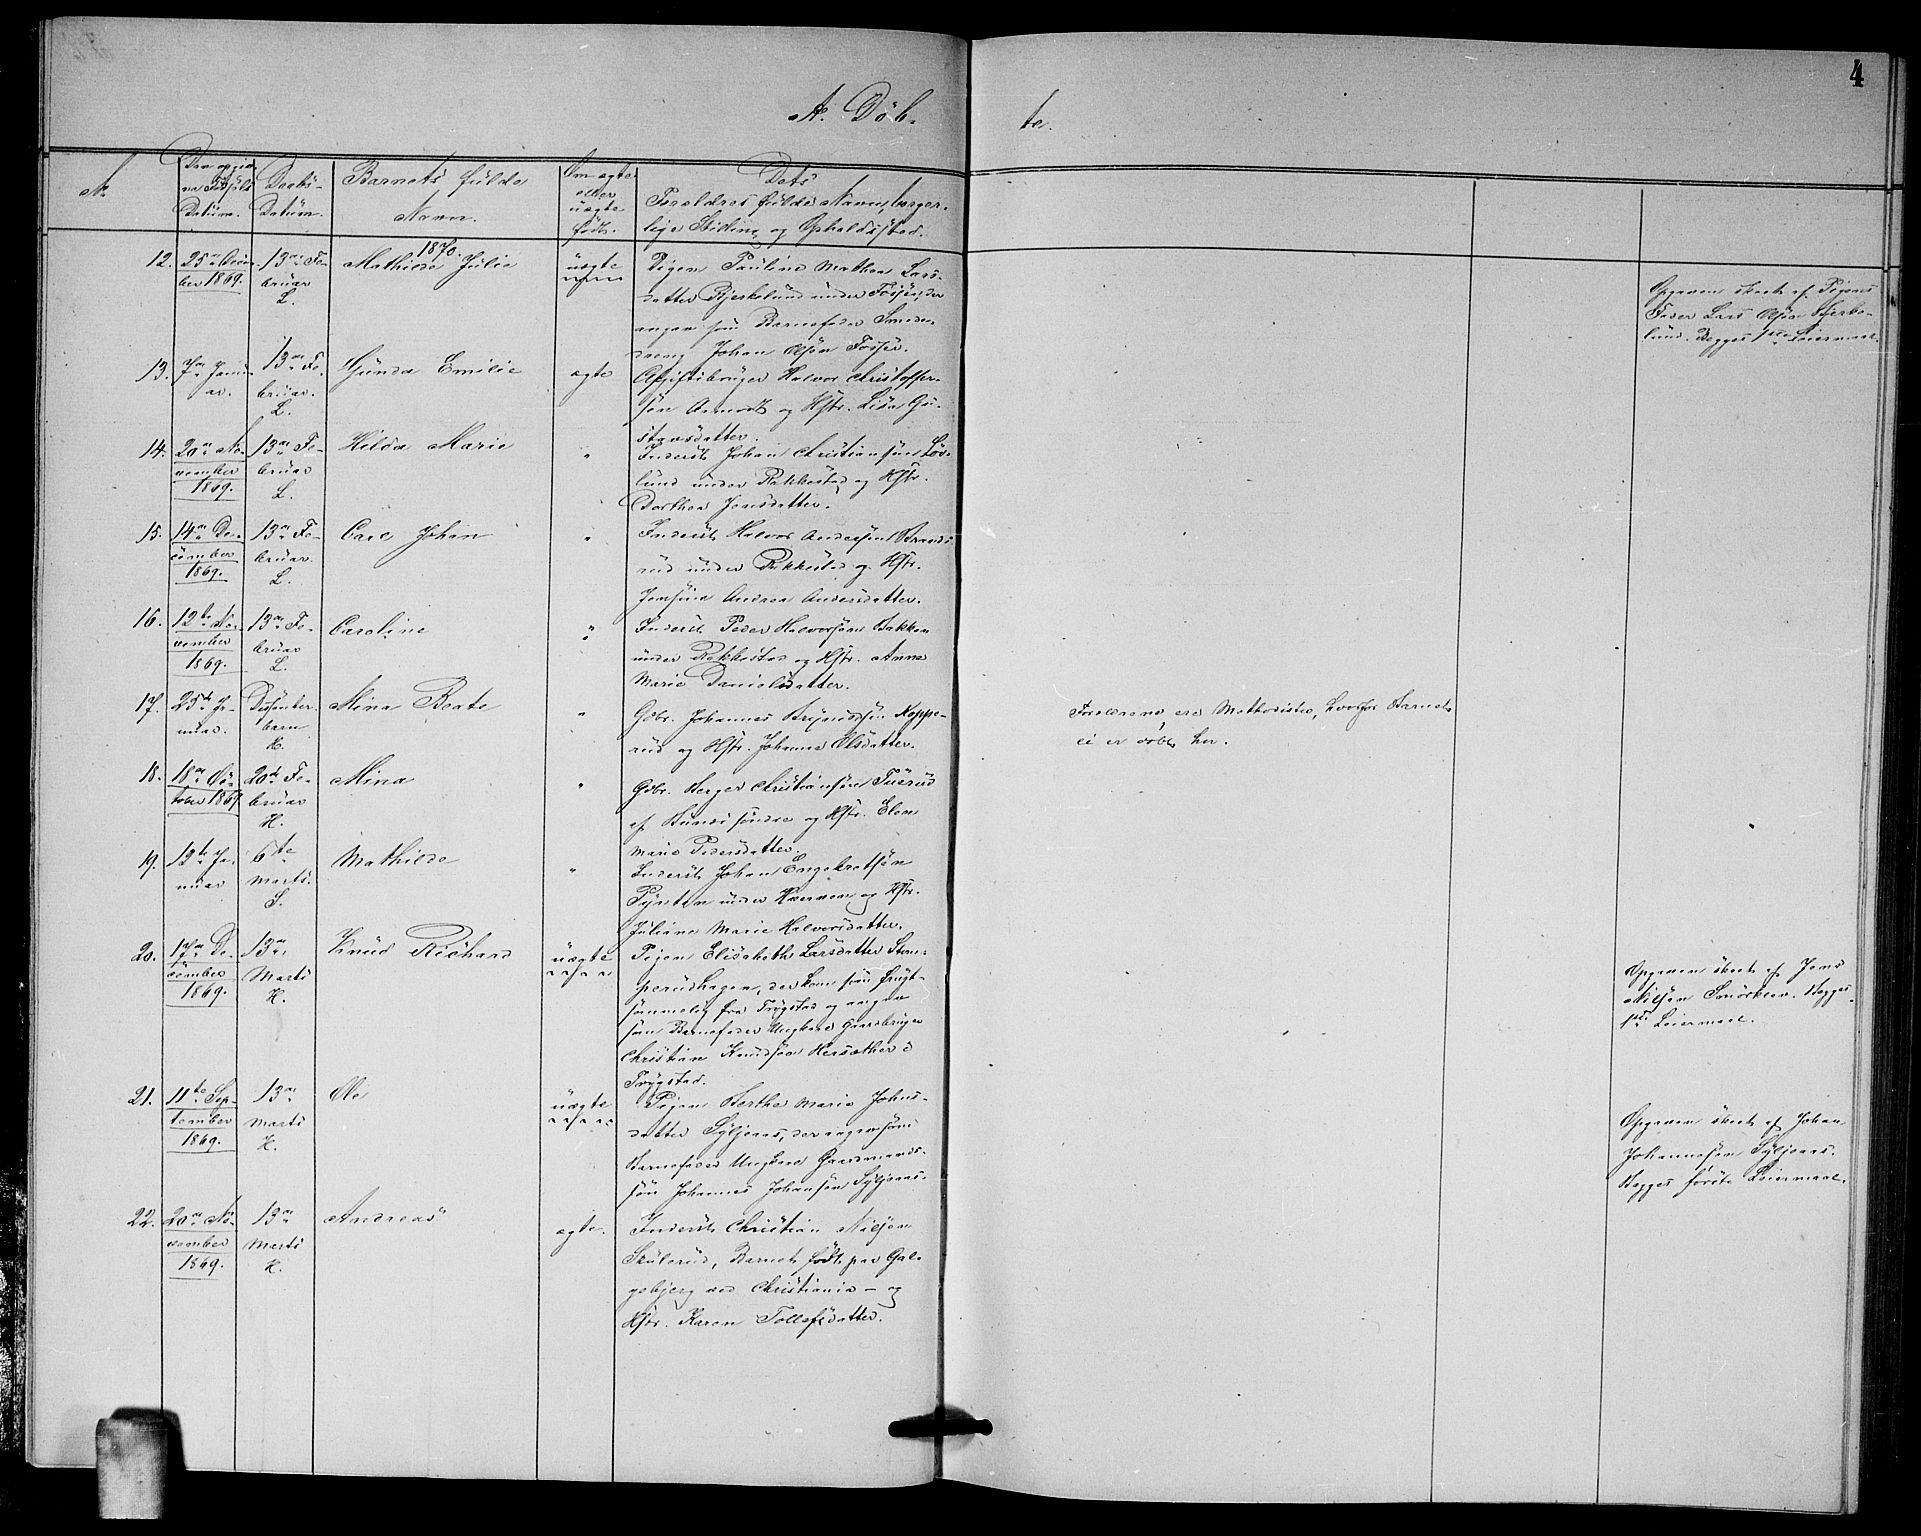 4
A. Döb- te.
No
Den opgivne Fødsels Datum.
Daabs-Datum.
Barnets fulde Navn.
Om ægte eller uægte født.
Dets Forældres fulde Navn, borgerlige Stilling og Opholdssted.
1870.
12. 25de ber 1869. 13de Februar L. Mathilde Julie uægte
Pigen Pauline Mathea Lars-
datter Bjerkelund under Fosser, der
angav som Barnefader
Johan Olsøn Fosser.
Opgaven skeet af Pigens
Fader Lars Olsøn Bjerke-
lund. Begges 1ste Leiermaal.
13. 7de Januar. 13de Februar. L. Gunda Emilie ægte
Afgiftsbruger Halvor Christoffer-
søn og Hstr. Lisa Gu-
stavsdatter.
14. 20de November 1869. 13de Februar L. Hilda Marie "
Inderst Johan Christiansøn Løv-
lund under Rakkestad og Hstr.
Dorthea Jensdatter.
15. 14de December 1869. 13de Februar. L. Carl Johan "
Inderst Halvor Andersøn Brands-
rud under Rakkestad og Hstr.
Josine Andrea Andersdatter.
16. 12te November 1869. 13de Februar L. Caroline "
Inderst Peder Halvorsøn Bakken
under Rakkestad og Hstr. Anne
Marie Danielsdatter.
17. 25de Januar. Dissenter barn H. Mina Beate "
Gdbr. Johannes Brynildsøn Koppe-
rud og Hstr. Johanne Olsdatter.
Forældrene ere Methodister, hvorfor Barnet
ei er døbt her.
18. 18de October 1869 20de Februar H. Mina "
Gdbr. Berger Christiansøn Tuerud
af søndre og Hstr. Elen
Marie Pedersdatter.
19. 12te Januar 6te Marts. S. Mathilde "
Inderst Johan Engebretsøn
under og Hstr.
Juliane Marie Halvorsdatter.
20. 17de December 1869. 13de Marts H. Knud Richard uægte
Pigen Elisabeth Larsdatter Stom-
perudhagen, der kom som frugt-
sommelig fra Trygstad og angav
som Barnefader Ungkarl Gaardbruger
Christian Knudsøn Hersæther i
Trygstad.
Opgaven skeet af Jens
Nilsøn. Begges
1ste Leiermaal.
21. 11te September 1869. 13de Marts H. Ole uægte
Pigen Berthe Marie Johns-
datter Syljeaas, der angav som
Barnefader Ungkarl Gaardmands-
søn Johannes Johansøn Syljeaas.
Opgaven skeet af Johan
Johannesøn Syljeaas.
Begges første Leiermaal.
22. 20de November 1869. 13de Marts H. Andreas ægte.
Inderst Christian Nilsøn
Skulerud, Barnet født paa Gal-
gebjerg ved Christiania – og
Hstr. Karen Tollefsdatter.